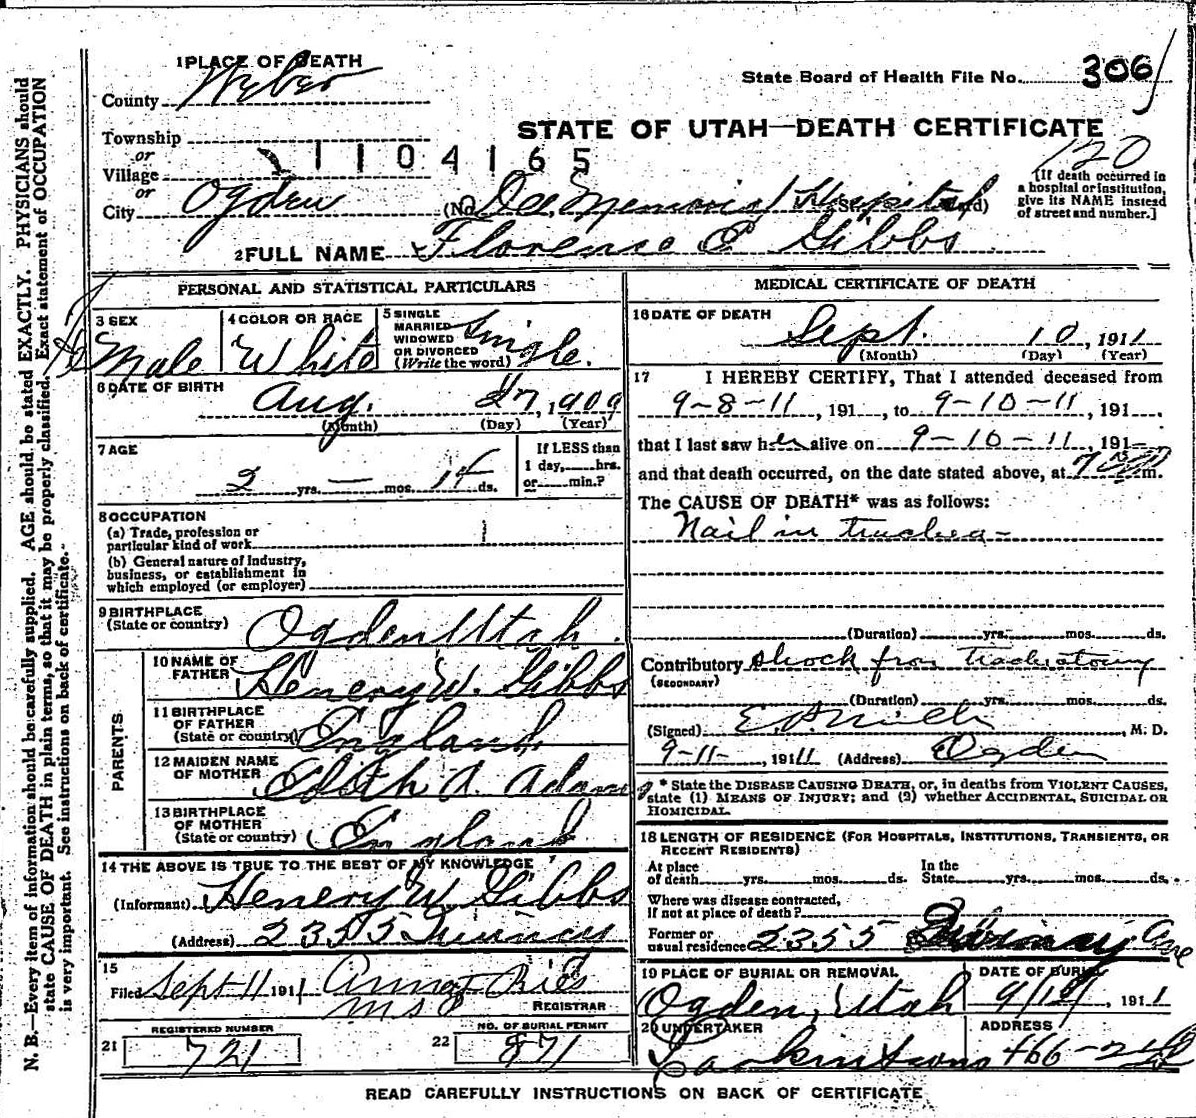 1 PLACE OF DEATH
County Weber
State Board of Health File No. 306
Township
or
Village
1104165
STATE OF UTAH—DEATH CERTIFICATE
120
or
City Ogden (No. Dee Memorial Hospital
[If death occurred in a hospital or institution, give its NAME instead of street and number.]
2 FULL NAME Florence E Gibbs
PERSONAL AND STATISTICAL PARTICULARS
3 SEX
Male
4 COLOR OR RACE
White
5 SINGLE MARRIED WIDOWED OR DIVORCED (Write the word) Single.
6 DATE OF BIRTH
Aug. 27, 1909
(Month) (Day) (Year)
7 AGE
2 yrs. — mos. 14 ds.
If LESS than 1 day, hrs. or min.?
8 OCCUPATION
(a) Trade, profession or
particular kind of work
(b) General nature of industry,
business, or establishment in
which employed (or employer)
9 BIRTHPLACE
(State or country) Ogden Utah.
PARENTS
10 NAME OF FATHER Henery W. Gibbs
11 BIRTHPLACE OF FATHER (State or country) England
12 MAIDEN NAME OF MOTHER Edith A. Adams
13 BIRTHPLACE OF MOTHER (State or country) England
14 THE ABOVE IS TRUE TO THE BEST OF MY KNOWLEDGE
(Informant) Henery W. Gibbs
(Address) 2355
15
Filed Sept 11 1911
REGISTRAR
REGISTERED NUMBER
21 721
NO. OF BURIAL PERMIT
22 871
MEDICAL CERTIFICATE OF DEATH
16 DATE OF DEATH
Sept. 10, 1911
(Month) (Day) (Year)
17 I HEREBY CERTIFY, That I attended deceased from
9-8-11, 191 , to 9-10-11, 191 .
that I last saw her alive on 9-10-11, 191
and that death occurred, on the date stated above, at m.
The CAUSE OF DEATH* was as follows:
Nail in trachea
(Duration) yrs. mos. ds.
Contributory shock from tracheotomy
(SECONDARY)
(Duration) yrs. mos. ds.
(Signed) , M. D.
9-11-, 1911 (Address) Ogden
* State the DISEASE CAUSING DEATH, or, in deaths from VIOLENT CAUSES,
state (1) MEANS OF INJURY; and (2) whether ACCIDENTAL, SUICIDAL OR
HOMICIDAL.
18 LENGTH OF RESIDENCE (FOR HOSPITALS, INSTITUTIONS, TRANSIENTS, OR
RECENT RESIDENTS)
At place of death yrs. mos. ds. In the State yrs. mos. ds.
Where was disease contracted,
if not at place of death?
Former or
usual residence 2355 Ave
19 PLACE OF BURIAL OR REMOVAL
Ogden, Utah
DATE OF BURIAL
9/12/, 1911
20 UNDERTAKER
ADDRESS
READ CAREFULLY INSTRUCTIONS ON BACK OF CERTIFICATE
N. B.—Every item of information should be carefully supplied. AGE should be stated EXACTLY. PHYSICIANS should
state CAUSE OF DEATH in plain terms, so that it may be properly classified. Exact statement of OCCUPATION
is very important. See instructions on back of certificate.